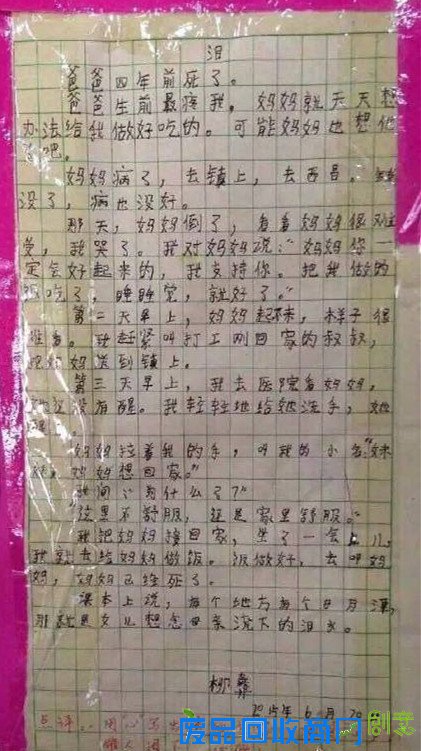 泪
爸爸四年前死了。
爸爸生前最疼我，妈妈就天天想
办法给我做好吃的。可能妈妈也想他
了吧。
妈妈病了，去镇上，去西昌。钱
没了，病也没好。
那天，妈妈倒了，看看妈妈很难
受，我哭了。我对妈妈说：“妈妈你一
定会好起来的，我支持你。把我做的
饭吃了，睡睡觉，就好了。”
第二天早上，妈妈起不来，样子很
难看。我赶紧叫打工刚回家的叔叔，
把妈妈送到镇上。
第三天早上，我去医院看妈妈，
她还没有醒。我轻轻地给她洗手，她
醒了。
妈妈拉着我的手，叫我的小名：“妹
妹，妈妈想回家。”
我问：“为什么了？”
“这里不舒服，还是家里舒服。”
我把妈妈接回家，坐了一会儿，
我就去给妈妈做饭。饭做好，去叫妈
妈，妈妈已经死了。
课本上说，每个地方每个日月潭，
那就是女儿想念母亲流下的泪水。
柳彝
2015年6月20
点评：用心写
废品回收商网
创意